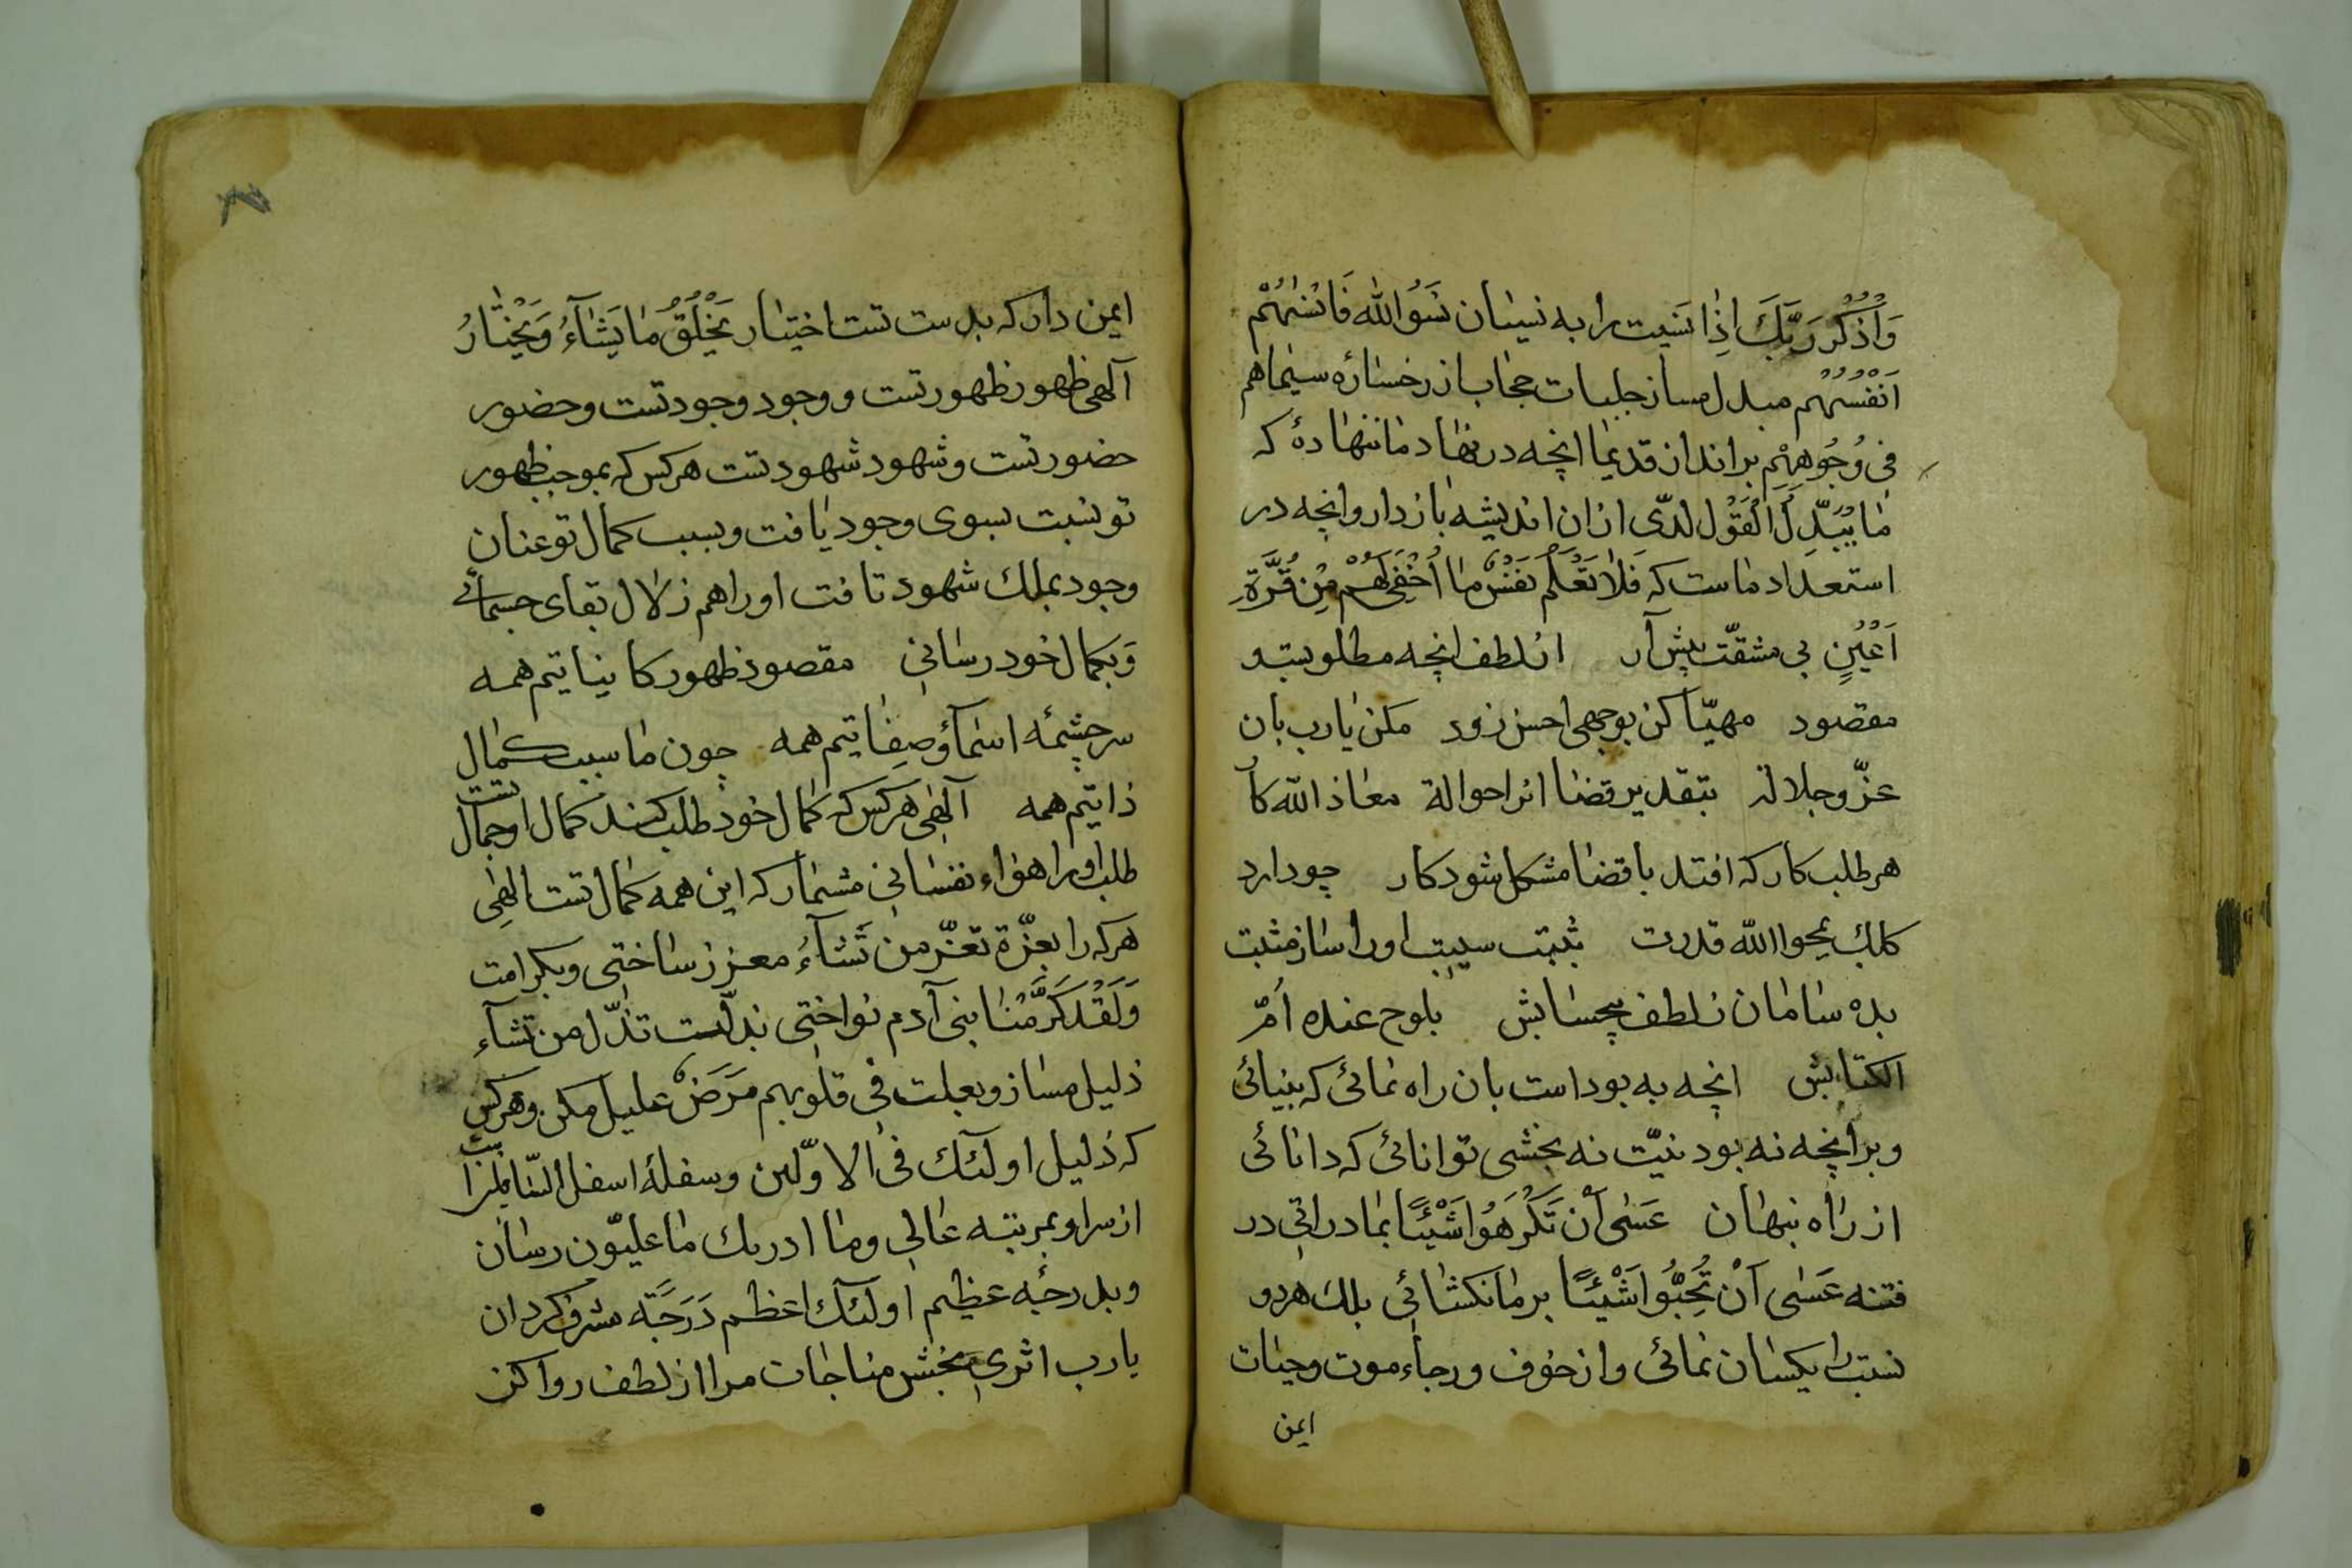 وَاذْكُرْ رَبَّكَ اِذٰا نَسَیت را به نسیٰان نَسَوُا اللّٰه فَاَنْسٰیهُمْ
اَنْفُسَهُم مبدل مساز جلبات حجٰاب از رخسٰارهٔ سیمٰاهم
فی وُجُوهِهِمْ براندان قدیمٰا انچه در نهٰاد مٰا ننهٰادهٔ که
مٰا یُبَدِّلُ الْقَوْل لدیّ ازان اندیشه بٰاز دار وانچه در
استعداد مٰاست که فَلٰا تَعْلَمُ نَفْسٌ مٰا اُخْفِیَ لَهُمْ مِن قُرَّةِ
اَعْیُنٍ بی مشقّت پیش آر از لطف انچه مطلوبست و
مقصود مهیّا کن بوجهی احسن زود مکن یٰارب بان
عزّ و جلالة بتقدیر قضٰا انرا حوالة معٰاذ اللّه کا
هر طلب کار که افتد بٰا قضٰا مشکل شود کار چو دارد
کلک یمحوا اللّه قدرت بثبتت سیبت اورا ساز مثبت
بده سٰامٰان ز لطف بیحسٰابش بلوح عنده اُمّ
الکتابش انچه به بود است بان راه نمٰائی که بینٰائی
و برانچه نه بود نیّت نه بخشی توانائی که دانٰائی
از رٰاه نبهٰان عَسٰی اَنْ تَکْرَهُوا شَیْئًا بمٰا در اٰئی در
فتنه عَسٰی اَنْ تُحِبُّوا شَیْئًا بر مٰا نکشٰائی بلك هر دو
نسبت را یکسٰان نمٰائی و از خوف و رجٰاء موت و حیٰات
ایمن
ایمن دار که بدست تست اختیٰار یَخْلُقُ مٰا یَشٰآءُ وَ یَخْتٰارُ
آلهی ظهور ظهور تست و وجود وجود تست و حضور
حضور تست و شهود شهود تست هر کس که بموجب ظهور
تو نسبت بسوی وجود یٰافت و بسبب کمٰال تو عنان
وجود بملك شهود تافت او را هم زلال بقای جسمانی
وَ بکمٰال خود رسٰانی مقصود ظهور کاینٰاتیم همه
سرچشمٔه اسمٰآؤ صِفٰاتیم همه چون مٰا سبب کمٰال
ذاتیم همه آلهی هر کس که کمٰال خود طلب کند کمٰال او جمٰال تست
طلب او را هوٰاء نفسٰانی مشمٰار که این همه کمٰال تست الهٰی
هر که را بعزّة تعزّ من تَشٰآءُ معزز سٰاختی و بکرامت
وَلَقَدْ کَرَّمْنٰا بنی آدم نواختی بذلّت تذلّ من تشآء
ذلیل مسٰاز و بعلت فی قلوبهم مَرَضٌ علیل مکن و هر کس
که ذلیل اولئك فی الاوّلین و سفلهٔ اسفل السّافلین است
از سر او بمرتبه عٰالی و مٰا ادریك مٰا علیّون رسٰان
و بدرجٔه عظیم اولئك اعظم دَرَجَّة مشرف کردان
یارب اثری بخش منٰاجٰات مرا از لطف روا کن